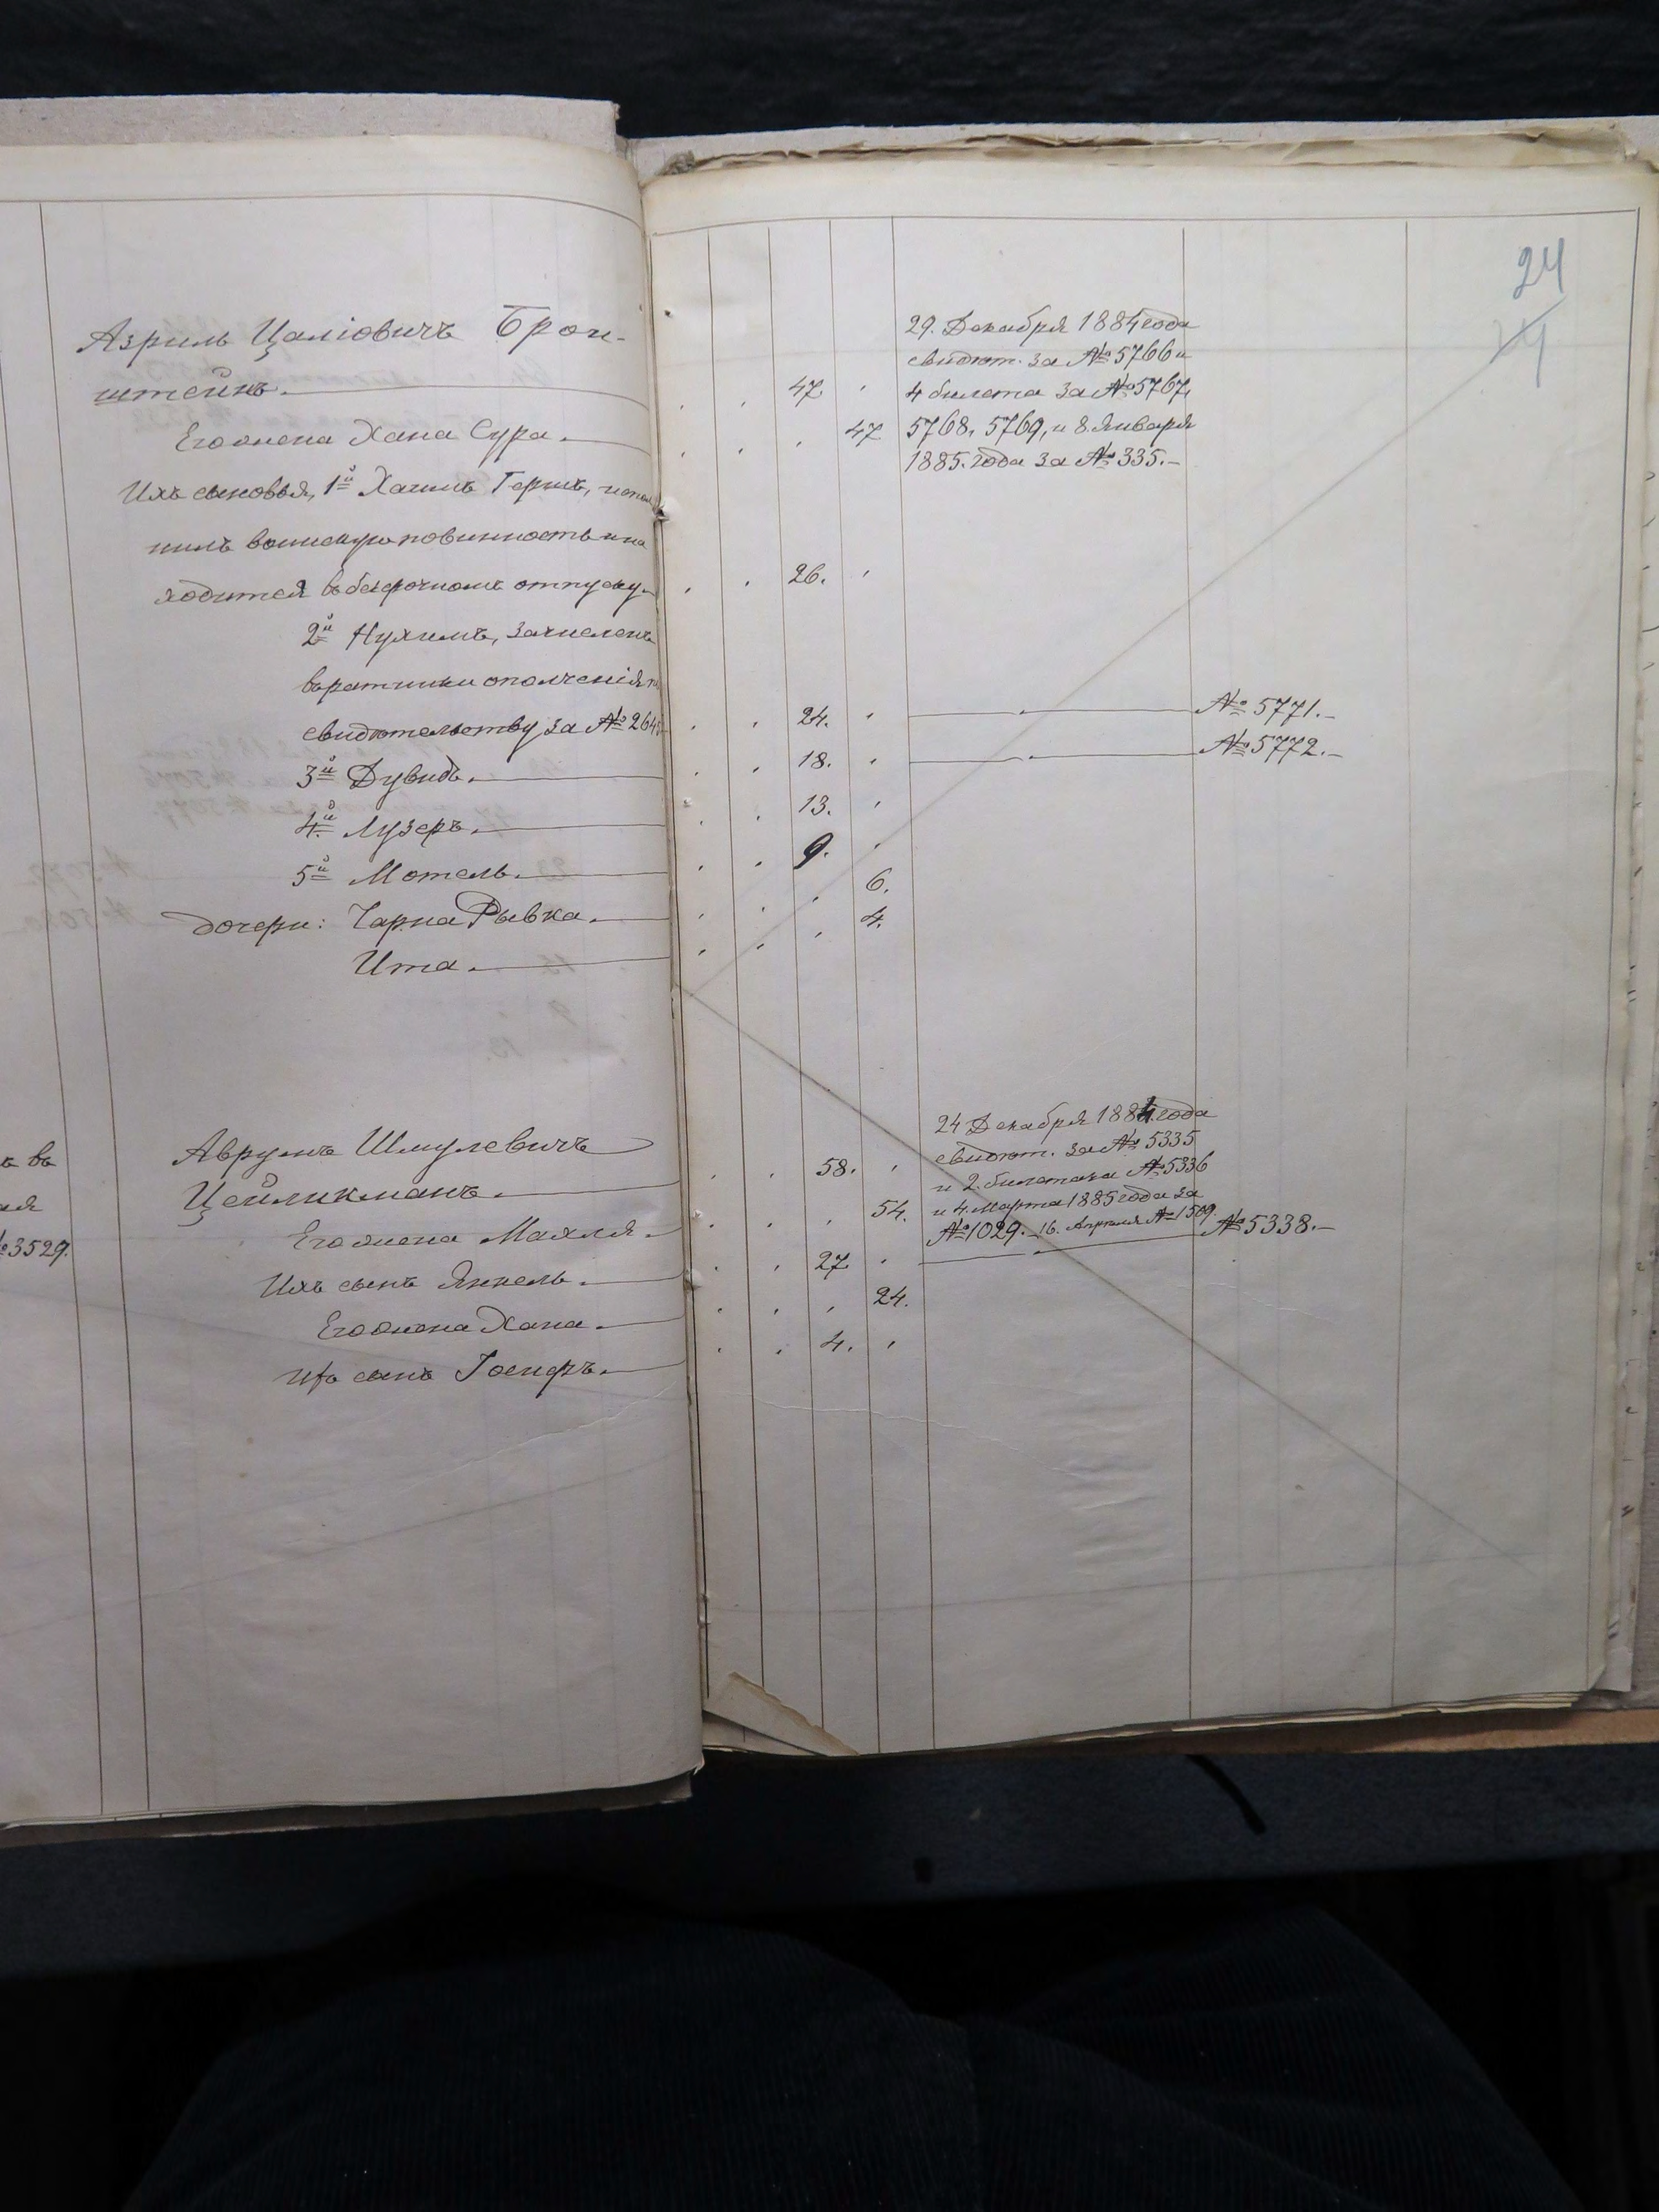 24
Азриль Цаліовичъ Брон-
штейнъ.
47.
Его жена Хана Сура.
47
Ихъ сыновья, 1й Хаимъ Гершъ, испол
нилъ воинскую повинность и на
ходится въ безсрочномъ отпуску.
26.
2й Нухимъ, зачисленъ
въ ратники ополченія по
свидѣтельству за № 264
24.
№ 5771.-
3й Дувидъ.
18.
№ 5772.-
4й Лузеръ.
13.
5й Мотель.
9.
дочери: Чарна Рывка.
6.
Ита.
4.
29. Декабря 1884 года
свидѣт. за № 5766 и
4 билета за № 5767,
5768, 5769, и 8. Января
1885. года за № 335.-
ъ въ
ая
№3529.
Аврумъ Шмулевичъ
Цейликманъ.
58.
Его жена Махля.
54.
Ихъ сынъ Янкель.
27.
№ 5338.-
Его жена Хана.
24.
ихъ сынъ Іосифъ.
4.
24 Декабря 1884 года
свидѣт. за № 5335
и 2. билета за № 5336
и 4. Марта 1885 года за
№ 1029. 16. Апреля № 1509.